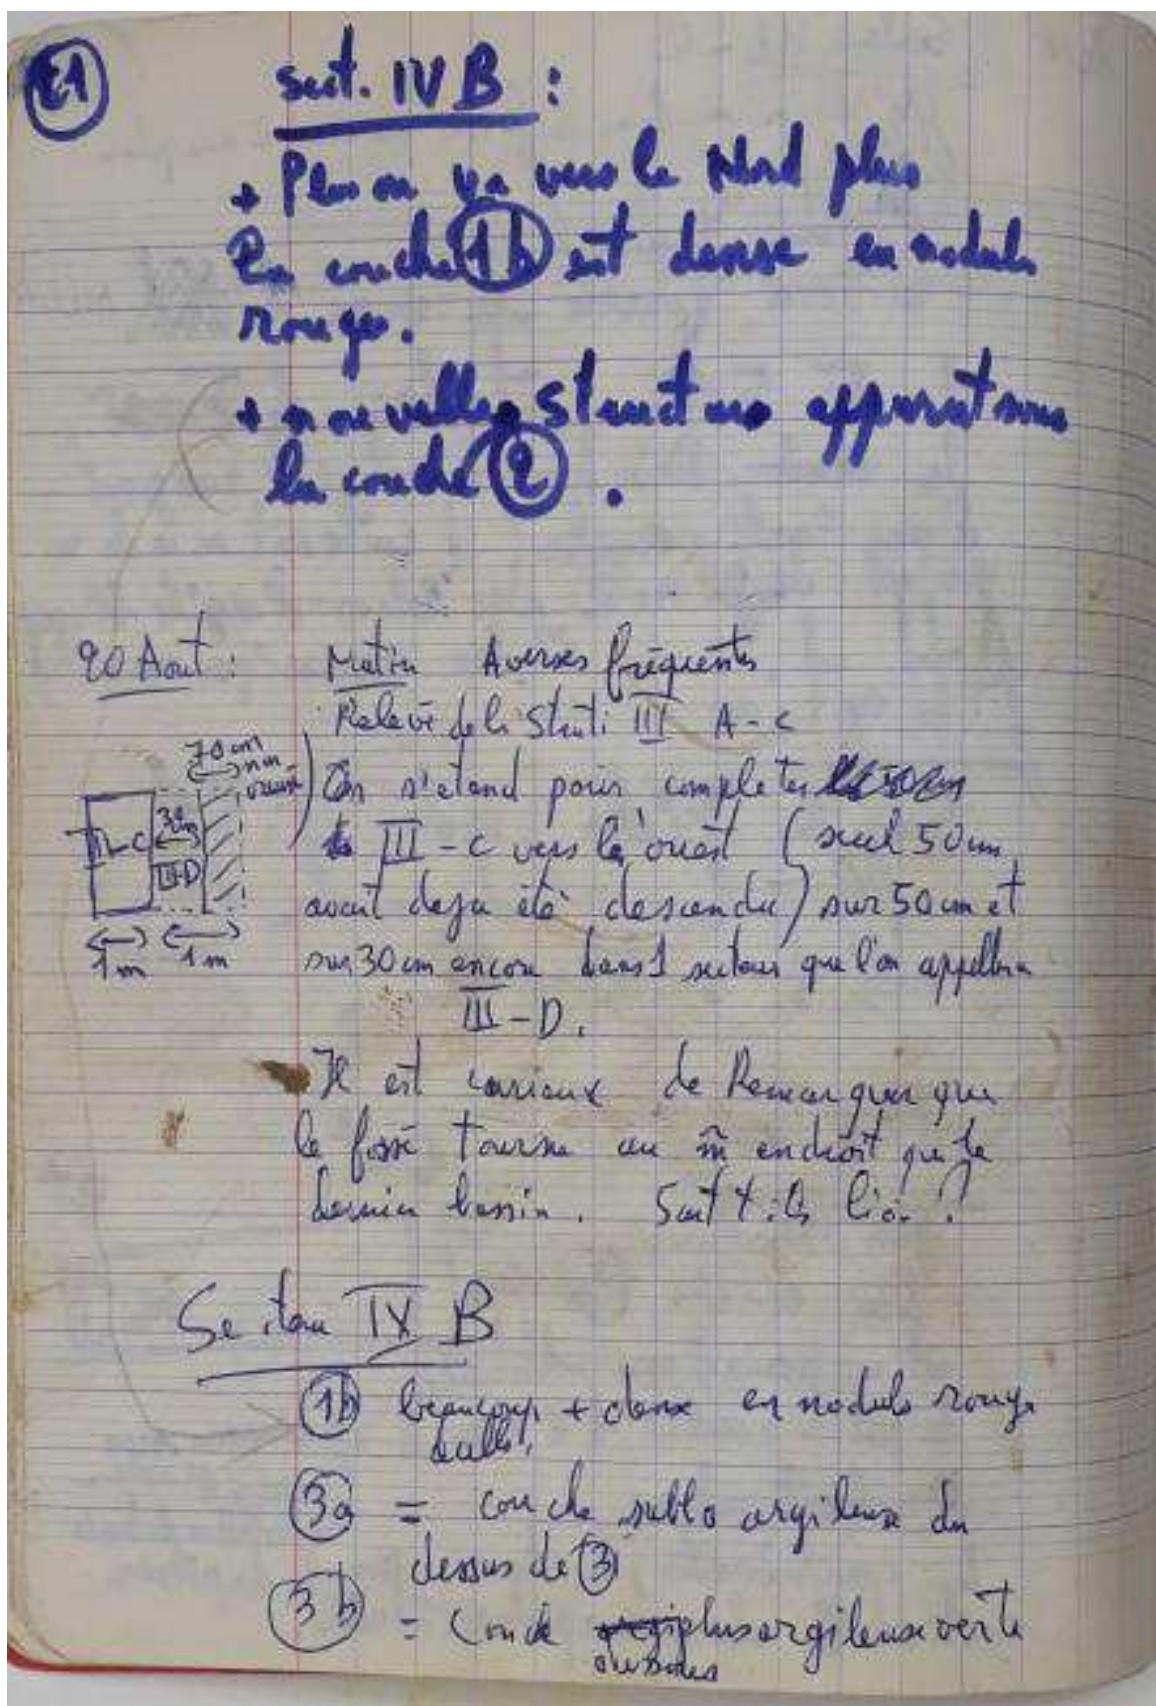 E1
sect. IV B :
+ Plus on va vers le Nord plus
la couche 1b est dense en nodules
rouges.
+ nouvelles structures apparaît sous
la couche 2.
20 Aout :
Matin Averses fréquentes
Relevé de la Strati III A-C
On s'étend pour completer
III-C vers l'ouest (seul 50cm
avait deja été descendu) sur 50cm et
sur 30cm encore dans 1 secteur que l'on appellera
III-D.
70cm
non
30cm
III-C
III-D
1m 1m
Il est curieux de Remarquer que
le fossé tourne au m̃ endroit que le
dernier bassin. Sont t-ils liés ?
Secteur IV B
1b beaucoup + dense en nodules rouge
3a = couche sablo argileuse du
dessus de 3
3b = Couche plus argileuse verte
dessous